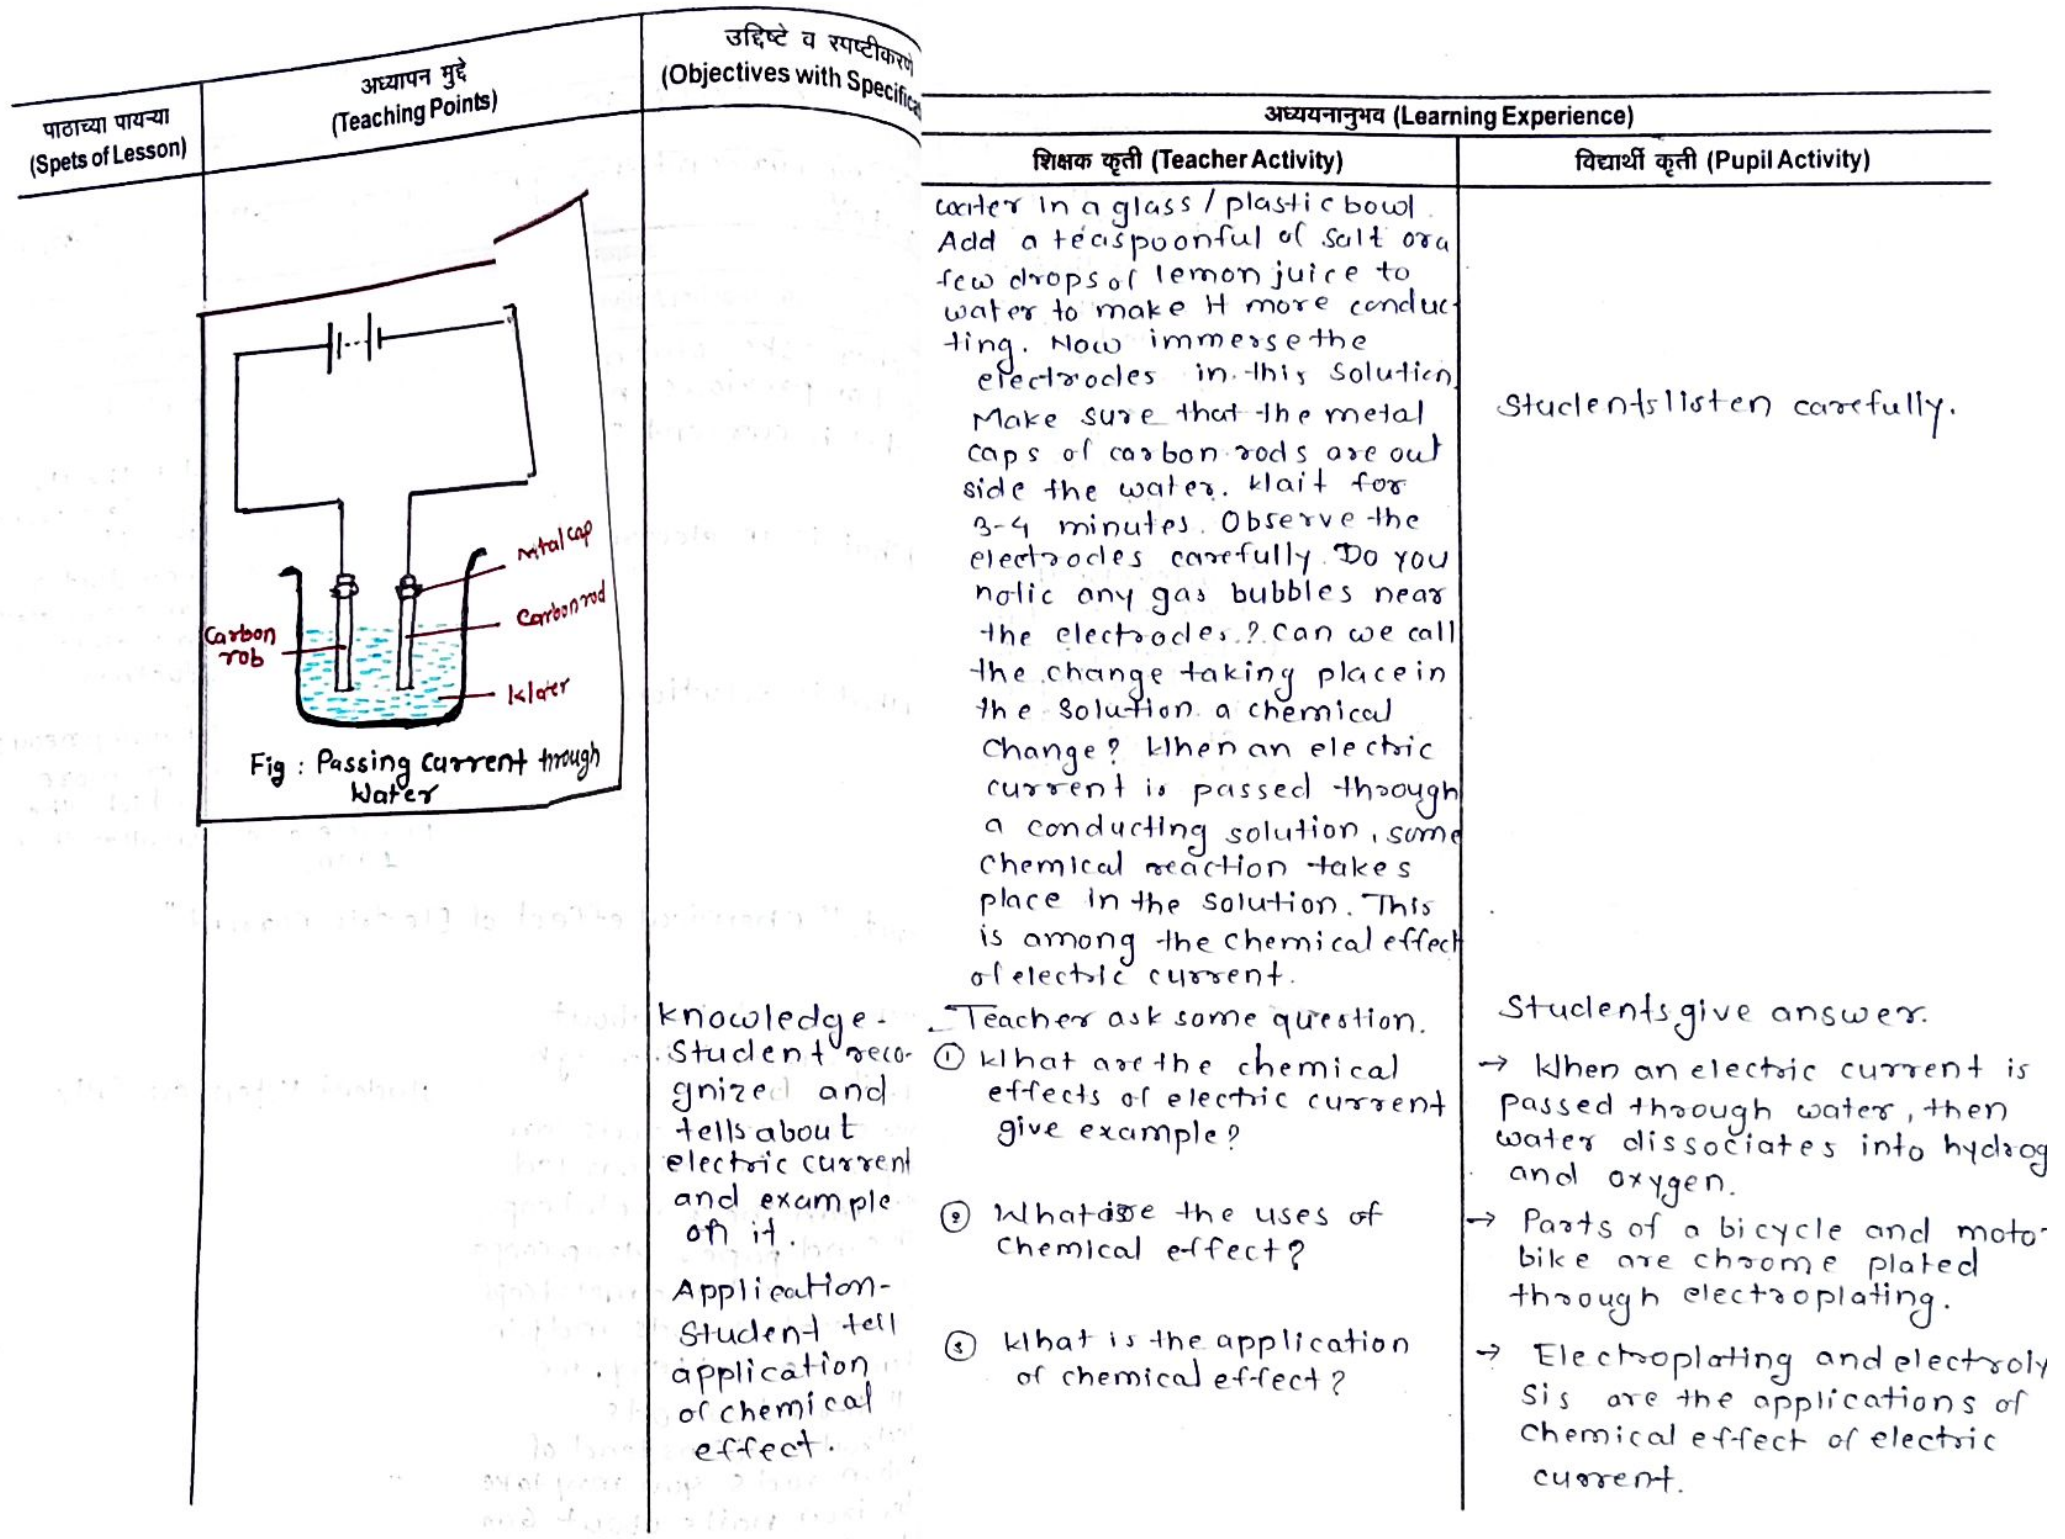 पाठाच्या पायऱ्या
(Spets of Lesson)
अध्यापन मुद्दे
(Teaching Points)
उद्दिष्टे व स्पष्टीकरणे
(Objectives with Specifica
अध्ययनानुभव (Learning Experience)
शिक्षक कृती (Teacher Activity)
विद्यार्थी कृती (Pupil Activity)
metal cap
Carbon rod
Carbon
rob
Water
Fig : Passing Current through
Water
knowledge-
Student reco-
gnized and
tells about
electric current
and example
on it.
Application-
Student tell
application
of chemical
effect.
water in a glass / plastic bowl.
Add a teaspoonful of salt or a
few drops of lemon juice to
water to make it more conduc-
ting. Now immerse the
electrodes in this solution.
Make sure that the metal
caps of carbon rods are out
side the water. Wait for
3-4 minutes. Observe the
electrodes carefully. Do you
notic any gas bubbles near
the electrodes.? Can we call
the change taking place in
the solution a chemical
Change? When an electric
current is passed through
a conducting solution, some
chemical reaction takes
place in the solution. This
is among the chemical effect
of electric current.
Teacher ask some question.
① What are the chemical
effects of electric current
give example?
② What are the uses of
chemical effect?
③ What is the application
of chemical effect?
Students listen carefully.
Students give answer.
→ When an electric current is
passed through water, then
water dissociates into hydrog
and oxygen.
→ Parts of a bicycle and moto-
bike are chrome plated
through electroplating.
→ Electroplating and electroly
sis are the applications of
chemical effect of electric
current.